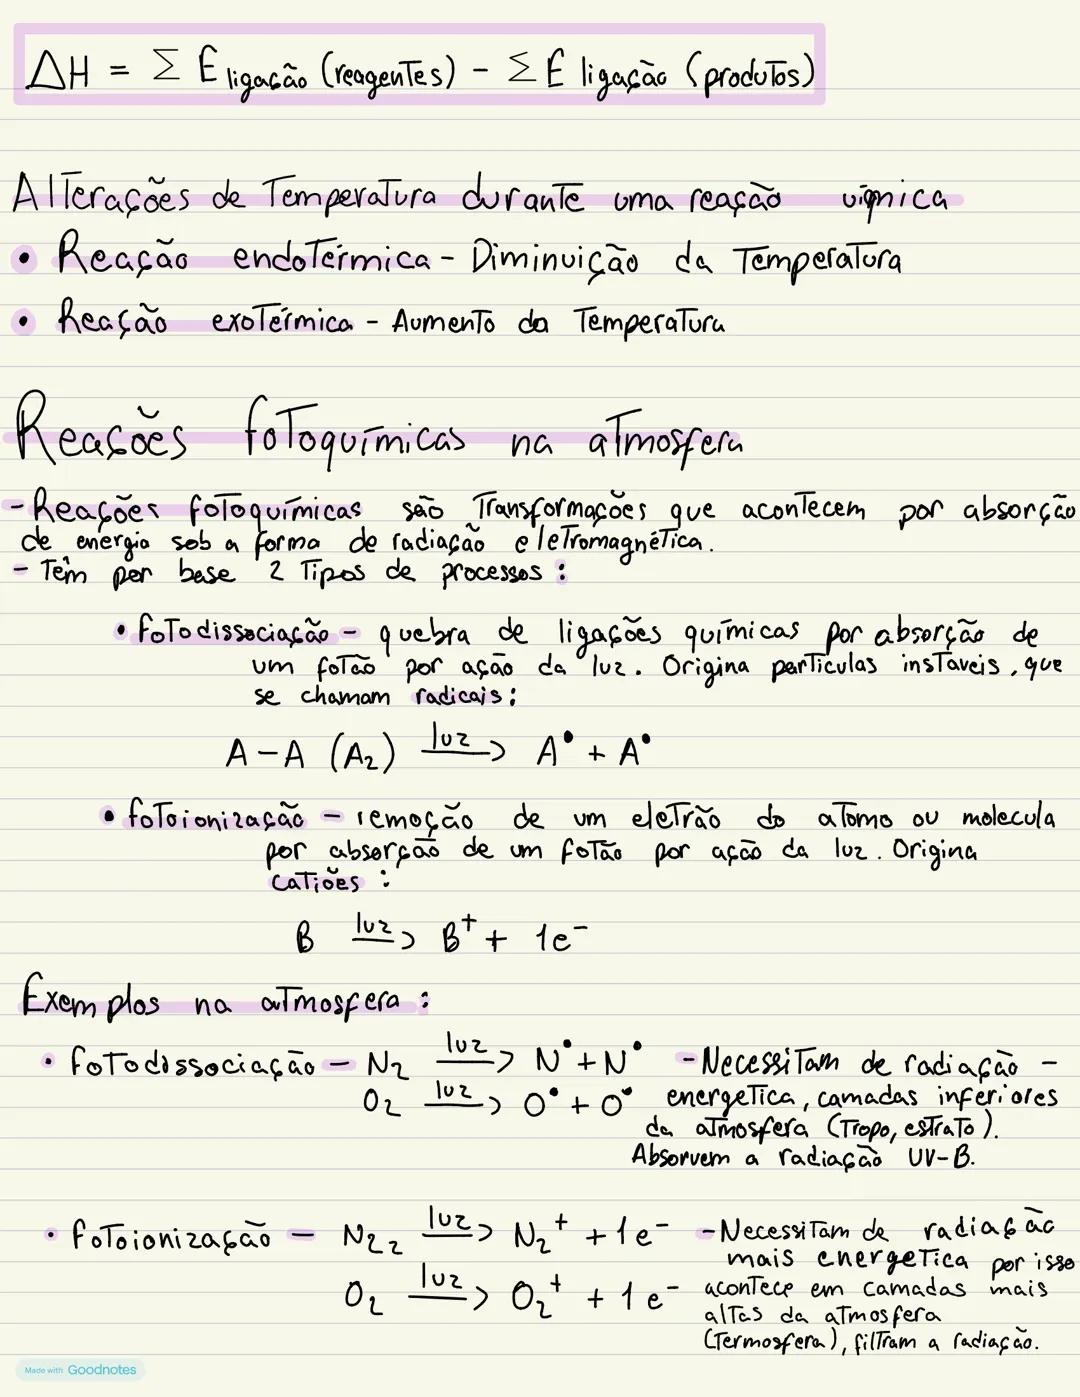 ΔH = Σ E ligação (reagentes) - Σ E ligação (produtos)
Alterações de Temperatura durante uma reação química
• Reação endotérmica - Diminuição da Temperatura
• Reação exotérmica - Aumento da Temperatura
Reações fotoquímicas na atmosfera
- Reações fotoquímicas são Transformações que acontecem por absorção
de energia sob a forma de radiação eletromagnética.
- Têm por base 2 Tipos de processos :
• fotodissociação - quebra de ligações químicas por absorção de
um fotão por ação da luz. Origina partículas instáveis, que
se chamam radicais:
A-A (A₂) luz→ A• + A•
• fotoionização - remoção de um eletrão do atomo ou molecula
por absorção de um fotão por ação da luz. Origina
Catiões :
B luz→ B⁺ + 1e⁻
Exemplos na atmosfera :
• fotodissociação - N₂ luz→ N• + N• - Necessitam de radiação -
O₂ luz→ O• + O• energetica, camadas inferiores
da atmosfera (Tropo, estrato).
Absorvem a radiação UV-B.
• fotoionização - N₂₂ luz→ N₂⁺ + 1e⁻ - Necessitam de radiação
mais energetica por isso
O₂ luz→ O₂⁺ + 1e⁻ acontece em camadas mais
altas da atmosfera
(Termosfera), filtram a radiação.
Made with Goodnotes